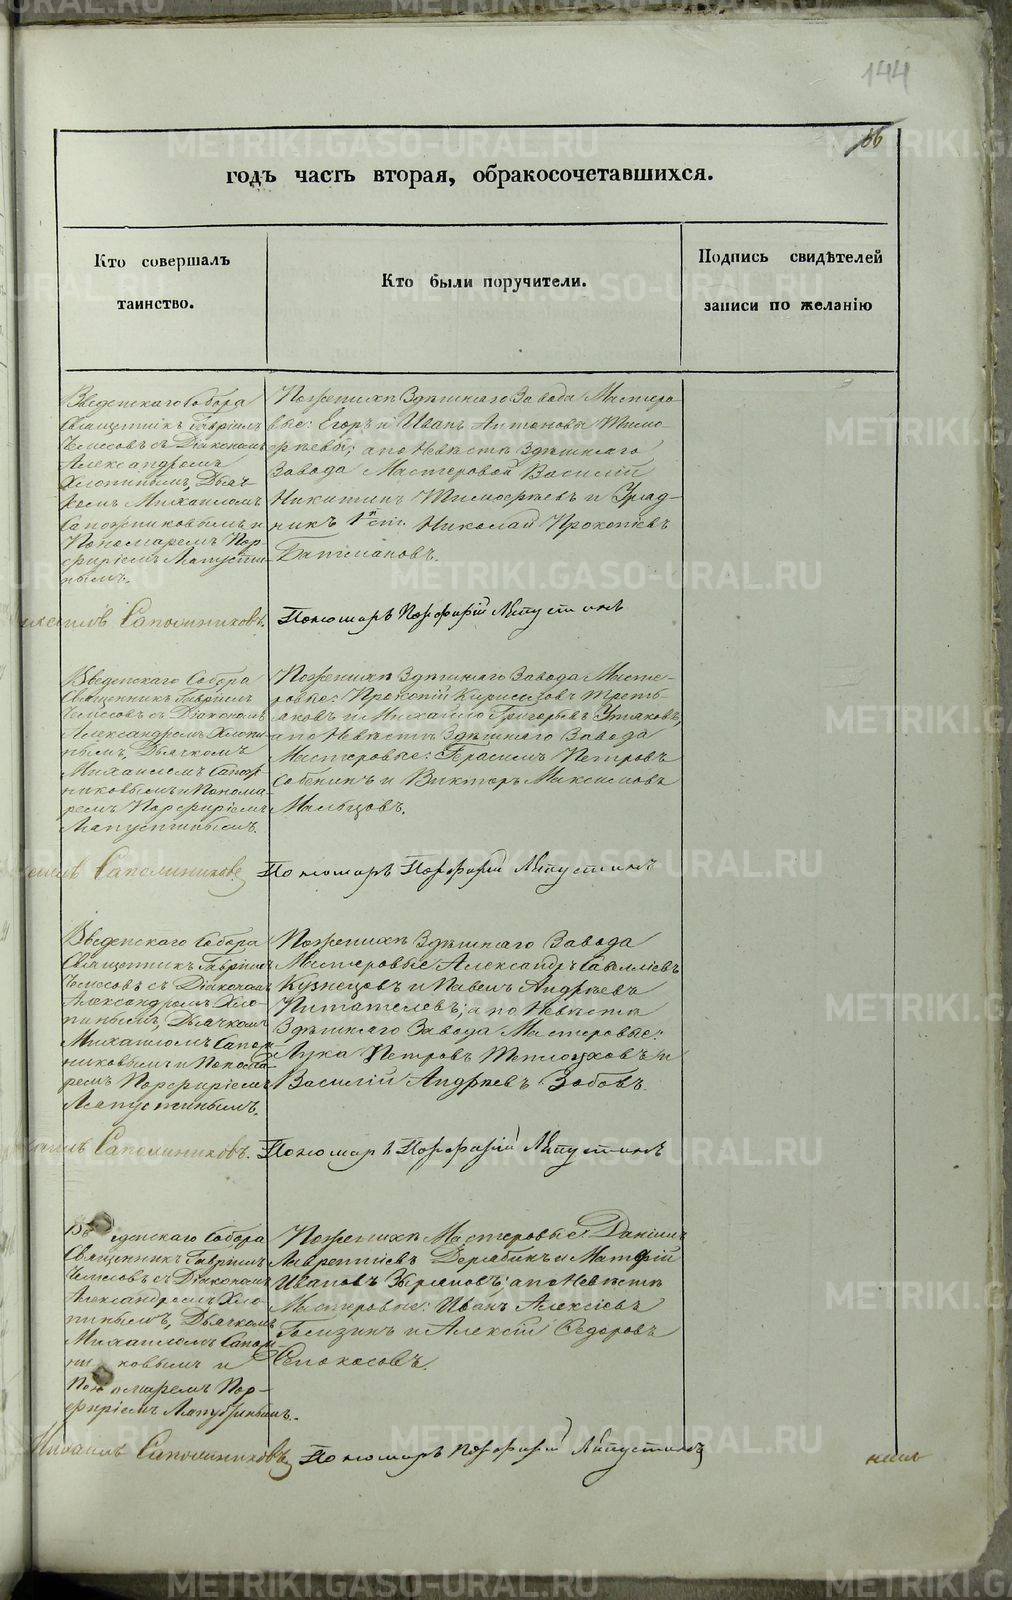 144
86
годъ часть вторая, обракосочетавшихся.
Кто совершалъ
таинство.
Кто были поручители.
Подпись свидѣтелей
записи по желанію
Введенскаго Собора
Священникъ Гавріилъ
съ Діакономъ
Александромъ
Хлопинымъ, Дьяч-
комъ Михаиломъ
Сапожниковымъ и
Пономаремъ Пор-
фиріемъ Лапусти-
нымъ.
По женихѣ Здѣшняго Завода Мастеро-
вые: Егоръ и Иванъ Антоновы Тимо-
фѣевы; а по невѣстѣ Здѣшняго
Завода Мастеровой Василій
Никитинъ Тимофѣевъ и Уряд-
никъ Николай Прокопіевъ
Сапожниковъ. Пономарь Порфирій Лапустинъ
Введенскаго Собора
Священникъ Гавріилъ
съ Діакономъ
Александромъ Хлопи-
нымъ, Дьячкомъ
Михаиломъ Сапож-
никовымъ и Понома-
ремъ Порфиріемъ
Лапустинымъ.
По женихѣ Здѣшняго Завода Масте-
ровые: Прокопій Треть-
яковъ и Михайло Григорьевъ
а по невѣстѣ Здѣшняго Завода
Мастеровые: Герасимъ Петровъ
и Викторъ Максимовъ
Мальцовъ.
Сапожниковъ Пономарь Порфирій Лапустинъ
Введенскаго Собора
Священникъ Гавріилъ
съ Діакономъ
Александромъ Хло-
пинымъ, Дьячкомъ
Михаиломъ Сапож-
никовымъ и Понома-
ремъ Порфиріемъ
Лапустинымъ.
По женихѣ Здѣшняго Завода
Мастеровые Александръ Савеліевъ
Кузнецовъ и Павелъ Андрѣевъ
Питателевъ; а по невѣстѣ
Здѣшняго Завода Мастеровые:
Лука Петровъ Теплоуховъ и
Василій Андрѣевъ Зобовъ.
Сапожниковъ. Пономарь Порфирій Лапустинъ
Введенскаго Собора
Священникъ Гавріилъ
съ Діакономъ
Александромъ Хло-
пинымъ, Дьячкомъ
Михаиломъ Сапож-
никовымъ и
Пономаремъ Пор-
фиріемъ Лапустинымъ.
По женихѣ Мастеровые: Даніилъ
Лаврентіевъ Дерябинъ и Матфій
Ивановъ Зыряновъ; а по невѣстѣ
Мастеровые: Иванъ Алексіевъ
и Алексій Федоровъ
Сенокосовъ.
Михаилъ Сапожниковъ Пономарь Порфирій Лапустинъ
METRIKI.GASO-URAL.RU